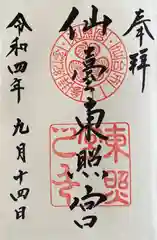 奉拝
仙臺東照宮
東照
令和四年
九月十四日